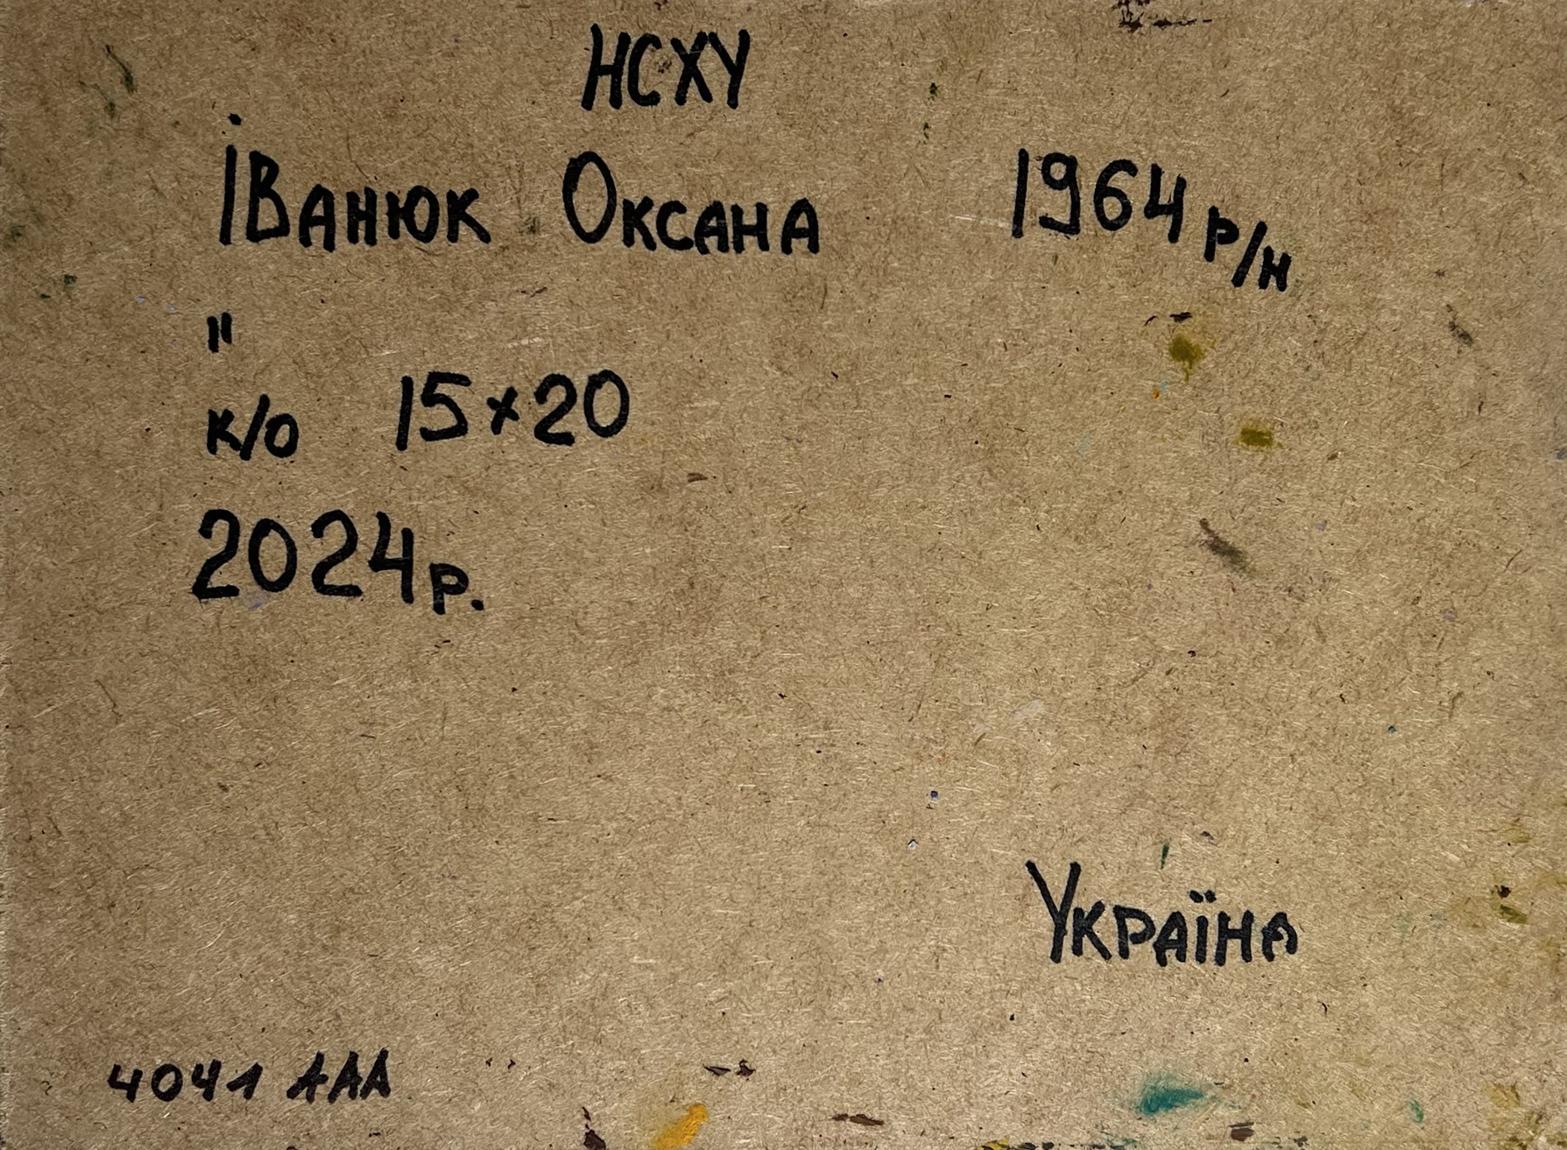 НСХУ
Іванюк Оксана 1964 р/н
"
к/о 15×20
2024р.
Україна
4041 ААА